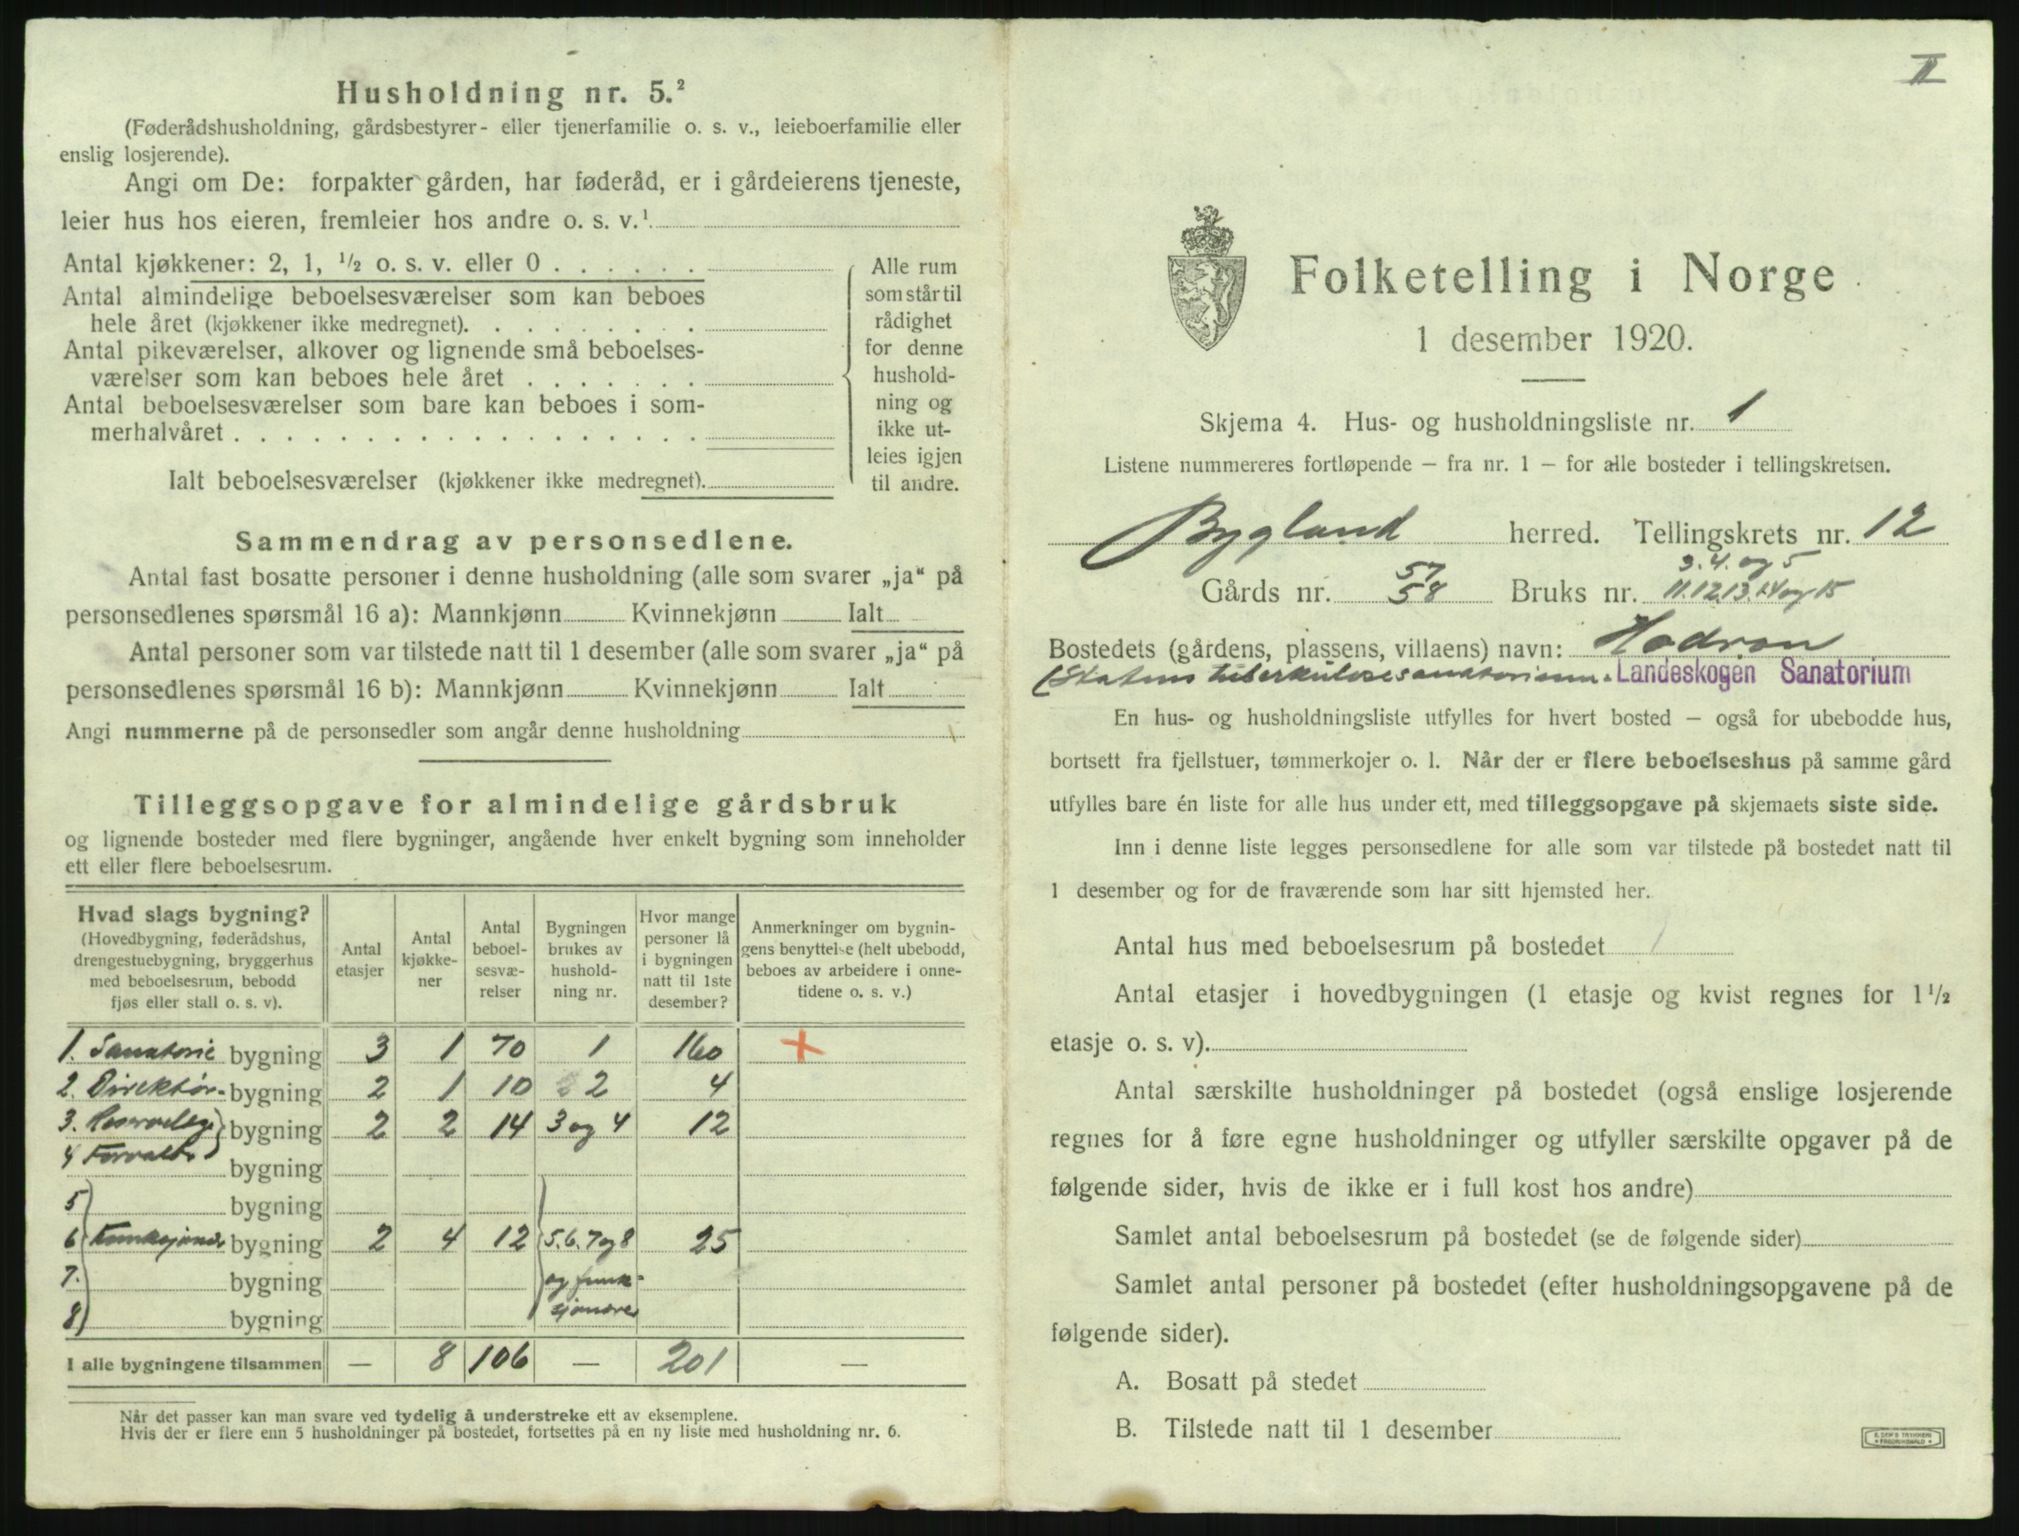 Husholdning nr. 5.²
(Føderådshusholdning, gårdsbestyrer- eller tjenerfamilie o. s. v., leieboerfamilie eller
enslig losjerende).
Angi om De: forpakter gården, har føderåd, er i gårdeierens tjeneste,
leier hus hos eieren, fremleier hos andre o. s. v.¹
Antal kjøkkener: 2, 1, ½ o. s. v. eller 0
Antal almindelige beboelsesværelser som kan beboes
hele året (kjøkkener ikke medregnet).
Antal pikeværelser, alkover og lignende små beboelses-
værelser som kan beboes hele året
Antal beboelsesværelser som bare kan beboes i som-
merhalvåret
Ialt beboelsesværelser (kjøkkener ikke medregnet).
Alle rum
som står til
rådighet
for denne
hushold-
ning og
ikke ut-
leies igjen
til andre.
Sammendrag av personsedlene.
Antal fast bosatte personer i denne husholdning (alle som svarer „ja“ på
personsedlenes spørsmål 16 a): Mannkjønn Kvinnekjønn Ialt
Antal personer som var tilstede natt til 1 desember (alle som svarer „ja“ på
personsedlenes spørsmål 16 b): Mannkjønn Kvinnekjønn Ialt
Angi nummerne på de personsedler som angår denne husholdning
Tilleggsopgave for almindelige gårdsbruk
og lignende bosteder med flere bygninger, angående hver enkelt bygning som inneholder
ett eller flere beboelsesrum.
Hvad slags bygning?
(Hovedbygning, føderådshus,
drengestuebygning, bryggerhus
med beboelsesrum, bebodd
fjøs eller stall o. s. v).
Antal
etasjer
Antal
kjøkke-
ner
Antal
beboel-
sesvæ-
relser
Bygningen
brukes av
hushold-
ning nr.
Hvor mange
personer lå
i bygningen
natt til 1ste
desember?
Anmerkninger om bygnin-
gens benyttelse (helt ubebodd,
beboes av arbeidere i onne-
tidene o. s. v.)
1. Sanatorie bygning 3 1 70 1 160 +
2. Direktør- bygning 2 1 10 2 4
3. Reservelege bygning 2 2 14 3 og 4 12
4 Forvalter bygning
5 bygning
6 Funksjonær bygning 2 4 12 5.6.7 og 8 25
7. bygning og funk-
8 bygning sjonære
I alle bygningene tilsammen — 8 106 — 201 —
Når det passer kan man svare ved tydelig å understreke ett av eksemplene.
Hvis der er flere enn 5 husholdninger på bostedet, fortsettes på en ny liste med husholdning nr. 6.
II
Folketelling i Norge
1 desember 1920.
Skjema 4. Hus- og husholdningsliste nr. 1
Listene nummereres fortløpende – fra nr. 1 – for alle bosteder i tellingskretsen.
Bygland herred. Tellingskrets nr. 12
57 3. 4. og 5
Gårds nr. 58 Bruks nr. 11.12.13.14 og 15
Bostedets (gårdens, plassens, villaens) navn: Hodron
(Statens tuberkulosesanatorium. Landeskogen Sanatorium
En hus- og husholdningsliste utfylles for hvert bosted – også for ubebodde hus,
bortsett fra fjellstuer, tømmerkojer o. l. Når der er flere beboelseshus på samme gård
utfylles bare én liste for alle hus under ett, med tilleggsopgave på skjemaets siste side.
Inn i denne liste legges personsedlene for alle som var tilstede på bostedet natt til
1 desember og for de fraværende som har sitt hjemsted her.
Antal hus med beboelsesrum på bostedet
Antal etasjer i hovedbygningen (1 etasje og kvist regnes for 1½
etasje o. s. v).
Antal særskilte husholdninger på bostedet (også enslige losjerende
regnes for å føre egne husholdninger og utfyller særskilte opgaver på de
følgende sider, hvis de ikke er i full kost hos andre)
Samlet antal beboelsesrum på bostedet (se de følgende sider)
Samlet antal personer på bostedet (efter husholdningsopgavene på de
følgende sider).
A. Bosatt på stedet
B. Tilstede natt til 1 desember